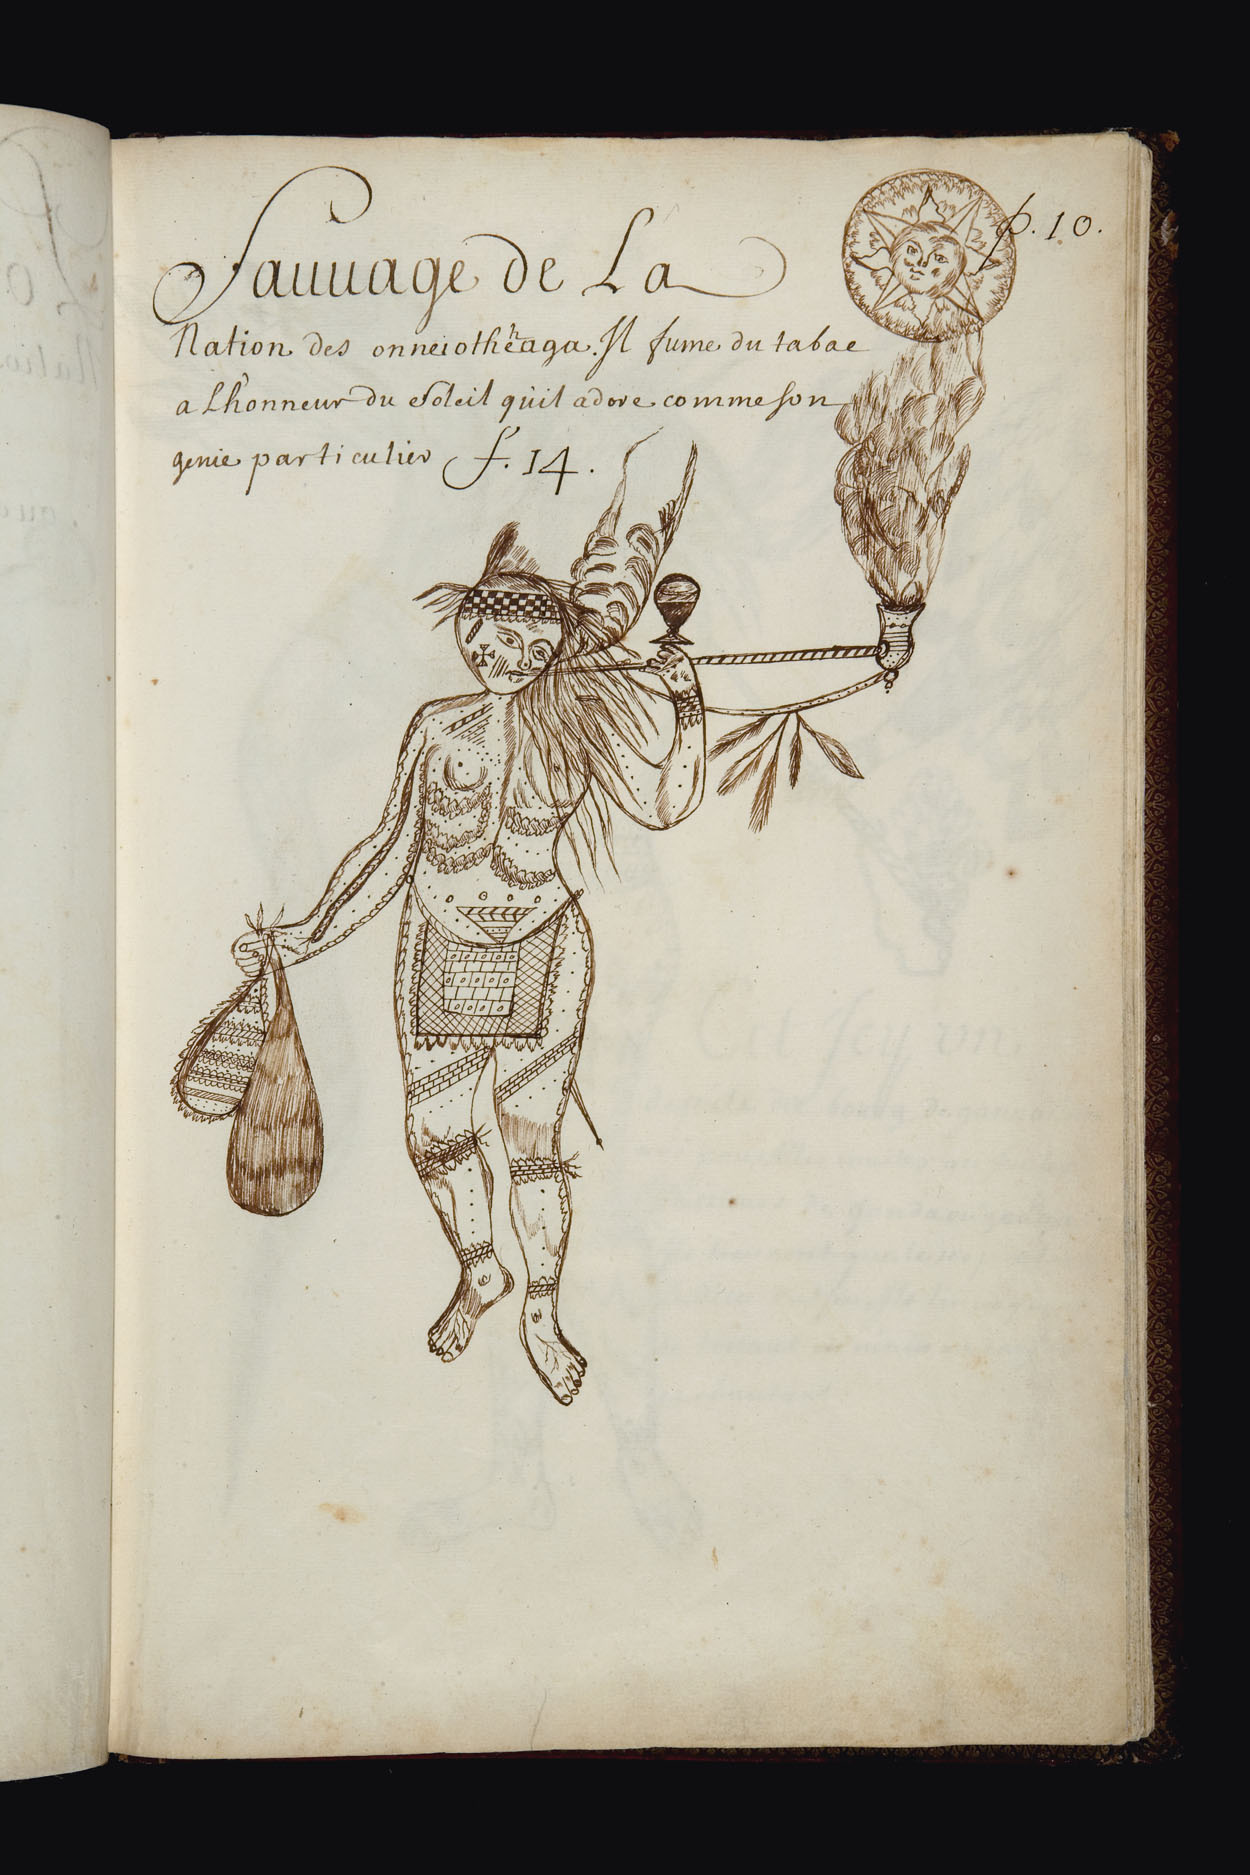 p. 10.
Sauuage de La
Nation des onneiothehaga. Il fume du tabac
a Lhonneur du soleil qu'il adore comme son
genie particulier f. 14.